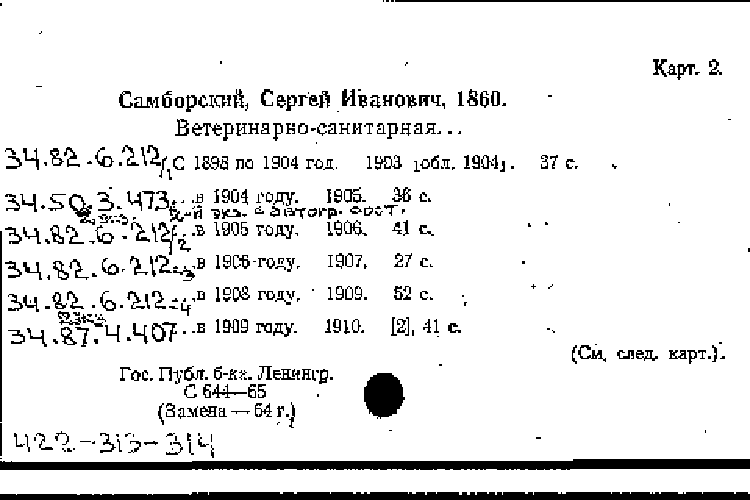 Карт. 2.
Самборский, Сергей Иванович, 1860.
Ветеринарно-санитарная...
34.82.6.212/1 С 1898 по 1904 год. 1903 [обл. 1904]. 37 с.
34.50.3.473 ...в 1904 году. 1905. 36 с.
2 экз. 2-й экз. с автогр. сост.
34.82.6.212/2 ...в 1905 году. 1906. 41 с.
34.82.6.212/3 ...в 1906 году. 1907. 27 с.
34.82.6.212/4 ...в 1908 году. 1909. 52 с.
2 экз.
34.87.4.407 ...в 1909 году. 1910. [2], 41 с.
(См. след. карт.).
Гос. Публ. б-ка. Ленингр.
С 644—65
(Замена — 54 г.)
422-313-314